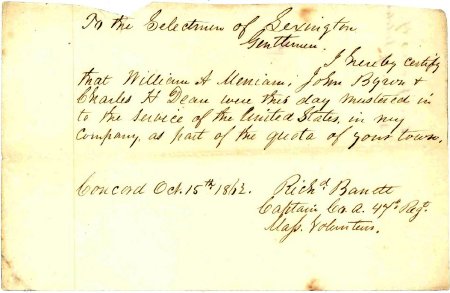 To the Selectmen of Lexington
Gentlemen.
I hereby certify
that William A Merriam, John Byron &
Charles H Dean were this day mustered in
to the service of the United States, in my
Company, as part of the quota of your town.
Concord Oct. 15th 1862. Richd Bandt
Captain, Co. A. 47th Regt.
Mass. Volunteers.